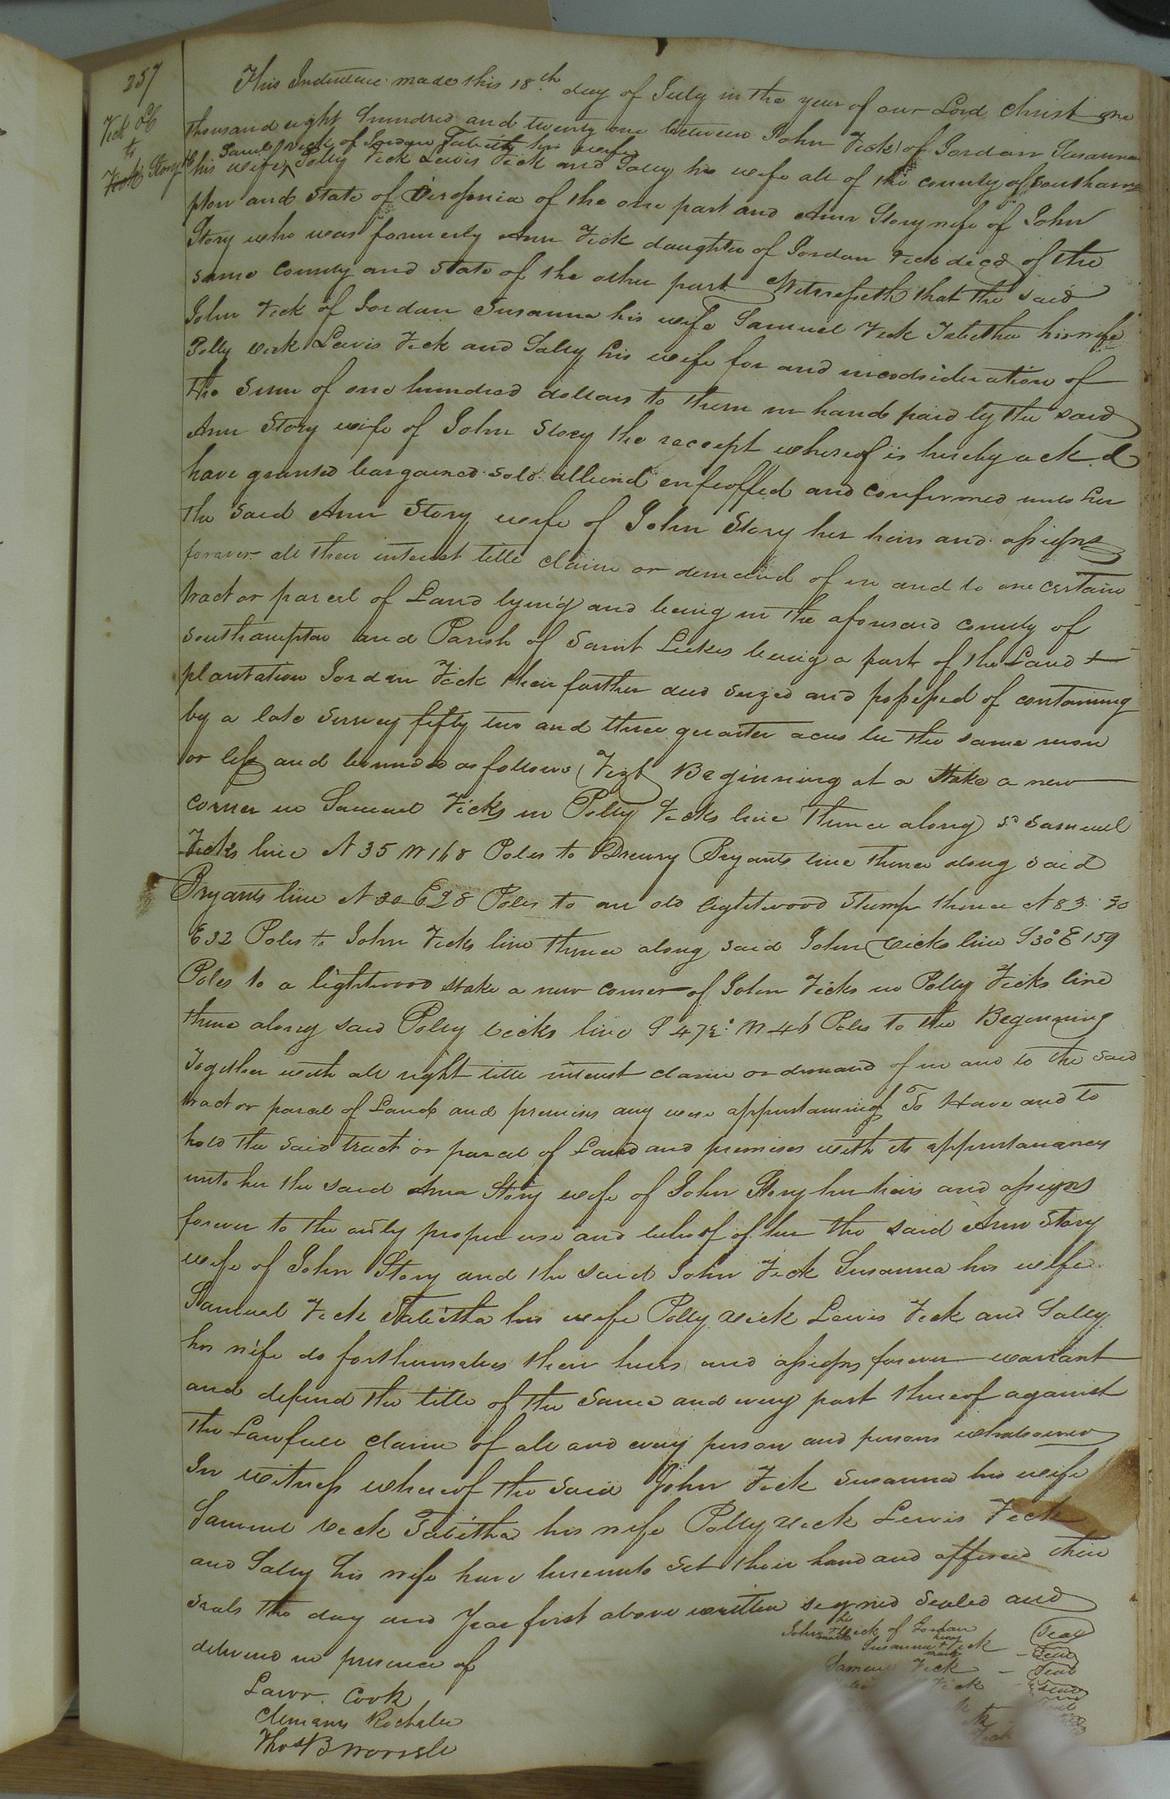 257
Vick &C
to
Story
This Indenture made this 18th day of July in the year of our Lord Christ one
thousand eight hundred and twenty one between John Vick of Jordan Susanna
Samuel Vick of Jordan Tabitha his wife
his wife, Polly Vick Lewis Vick and Salley his wife all of the county of Southam
pton and State of Virginia of the one part and Ann Story wife of John
Story who was formerly Ann Vick daughter of Jordan Vick decd of the
same County and State of the other part Witnesseth that the said
John Vick of Jordan Susanna his wife Samuel Vick Tabitha his wife
Polly Vick Lewis Vick and Salley his wife for and in consideration of
the sum of one hundred dollars to them in hand paid by the said
Ann Story wife of John Story the receipt whereof is hereby ack.d
have granted bargained sold aliend enfeoffed and confirmed unto her
the said Ann Story wife of John Story her heirs and assigns
forever all their interest title claim or demand of in and to one certain
tract or parcel of Land lying and being in the aforesaid county of
Southampton and Parish of Saint Lukes being a part of the Land &
plantation Jordan Vick their farther died seized and possessed of containing
by a late survey fifty two and three quarter acres be the same more
or less and bounded as follows Vizt Beginning at a Stake a new
corner in Samuel Vicks in Polly Vicks line thence along sd Samuel
Vicks line N 35 W 168 Poles to Drewry Bryants line thence along said
Bryants line N 30 E 28 Poles to an old lightwood Stump thence N 83. 30
E 32 Poles to John Vicks line thence along said John Vicks line S 30° E 159
Poles to a lightwood stake a new corner of John Vicks in Polly Vicks line
thence along said Polly Vicks line S 47½° W 46 Poles to the Beginning
Together with all right title interest claim or demand of in and to the said
tract or parcel of Land and premises any wise appertaining To Have and to
hold the said tract or parcel of Land and premises with its appurtanances
unto her the said Ann Story wife of John Story her heirs and assigns
forever to the only proper use and behoof of her the said Ann Story
wife of John Story and the said John Vick Susanna his wife
Samuel Vick Tabitha his wife Polly Vick Lewis Vick and Salley
his wife do for themselves their heirs and assigns forever warrant
and defend the title of the same and every part thereof against
the Lawfull claim of all and every person and persons whatsoever
In witness whereof the said John Vick Susanna his wife
Samuel Vick Tabitha his wife Polly Vick Lewis Vick
and Salley his wife have hereunto set their hand and affixed their
seals the day and Year first above written signed sealed and
delivered in presence of
John his mark Vick of Jordan Seal
Susanna her mark Vick Seal
Samuel Vick Seal
Vick Seal
Lawr. Cook
Clemans Rochelle
Thos B Worrell